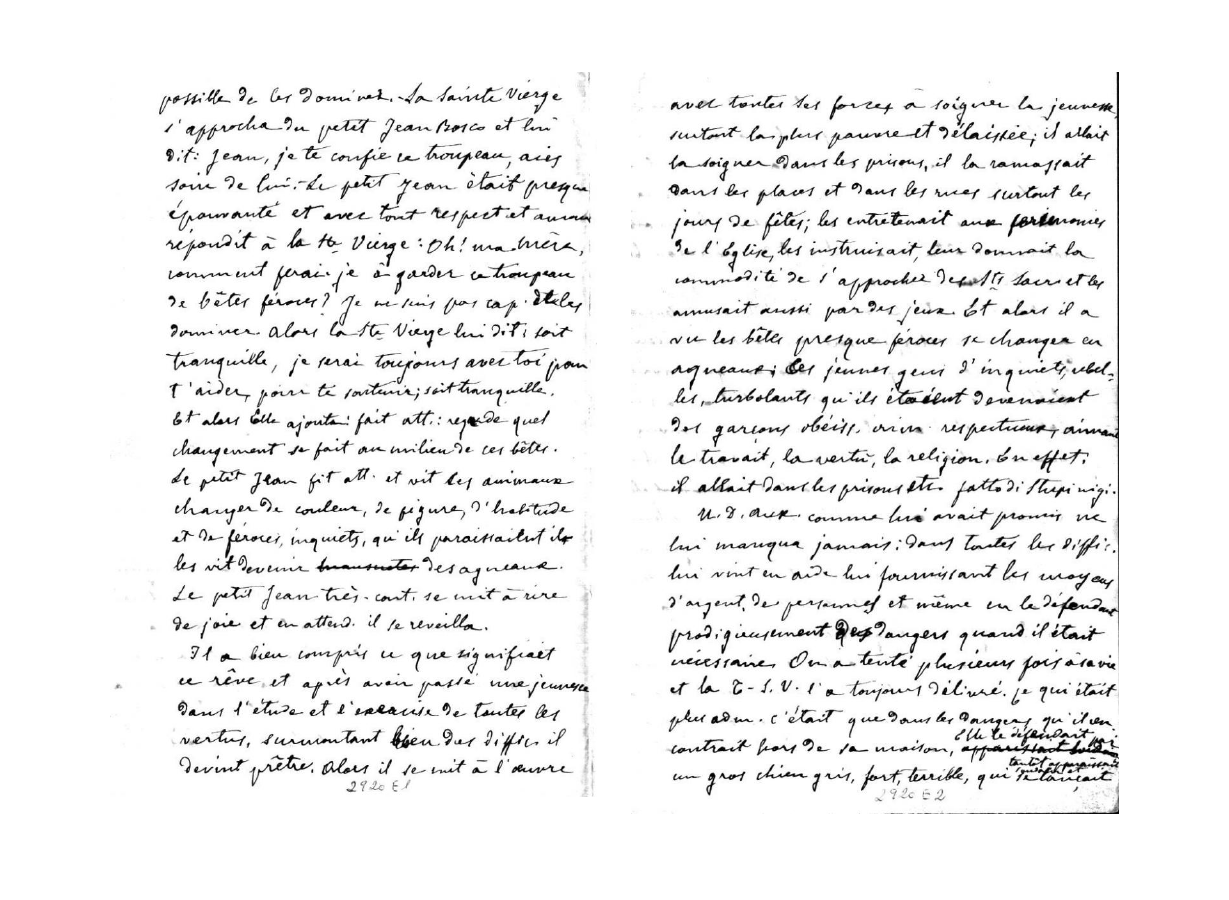 possille de les dominer. - La Sainte Vierge
s'approcha du petit Jean Bosco et lui
dit: Jean, je te confie ce troupeau, aies
soin de lui. - Le petit Jean était presque
épouvanté et avec tout respect et amour
répondit à la Ste Vierge: Oh! ma Mère,
comment ferai-je à garder ce troupeau
de bêtes féroces? Je ne suis pas cap. de les
dominer Alors la Ste Vierge lui dit: soit
tranquille, je serai toujours avec toi pour
t'aider, pour te soutenir; soit tranquille.
Et alors Elle ajouta: fait att.: regarde quel
changement se fait au milieu de ces bêtes.
Le petit Jean fit att. et vit ses animaux
changer de couleur, de figure, d'habitude
et de féroces, inquiets, qu'ils paraissailent ils
les vit devenir mansuetes des agneaux.
Le petit Jean très-cont. se mit à rire
de joie et en attend. il se reveilla.
Il a bien compris ce que signifiait
ce rêve et après avoir passé une jeunesse
dans l'étude et l'exercise de toutes les
vertus, surmontant bien des diffic. il
devint prêtre. Alors il se mit à l'œuvre
2920 E1
avec toutes ses forces à soigner la jeunesse,
surtout la plus pauvre et délaissée; il allait
la soigner dans les prisons, il la ramassait
dans les places et dans les rues surtout les
jours de fêtes; les entretenait aux cérémonies
de l'Eglise, les instruisait, leur donnait la
commodité de s'approcher des Sts Sacr. et les
amusait aussi par des jeux. Et alors il a
vu les bêtes presque féroces se changer en
agneaux: les jeunes gens d'inquiets, rebel-
les, turbolants qu'ils étaient devenaient
des garçons obéiss. respectueux, aimant
le travail, la vertu, la religion. En effet,
il allait dans les prisons etc. fatto di Stupinigi.
N. D. Aux. comme lui avait promis ne
lui manqua jamais: dans toutes les diffic.
lui vint en aide lui fournissant les moyens
d'argent, de personnes et même en le défendant
prodigieusement des dangers quand il était
nécessaire. On a tenté plusieurs fois à sa vie
et la T-S. V. l'a toujours délivré. Je qui était
plus adm. c'était que dans les dangers qu'il en
Elle le défendait par
contrait hors de sa maison, apparissait
tantôt apparaissait
un gros chien gris, fort, terrible, qui se lançait
2920 E2